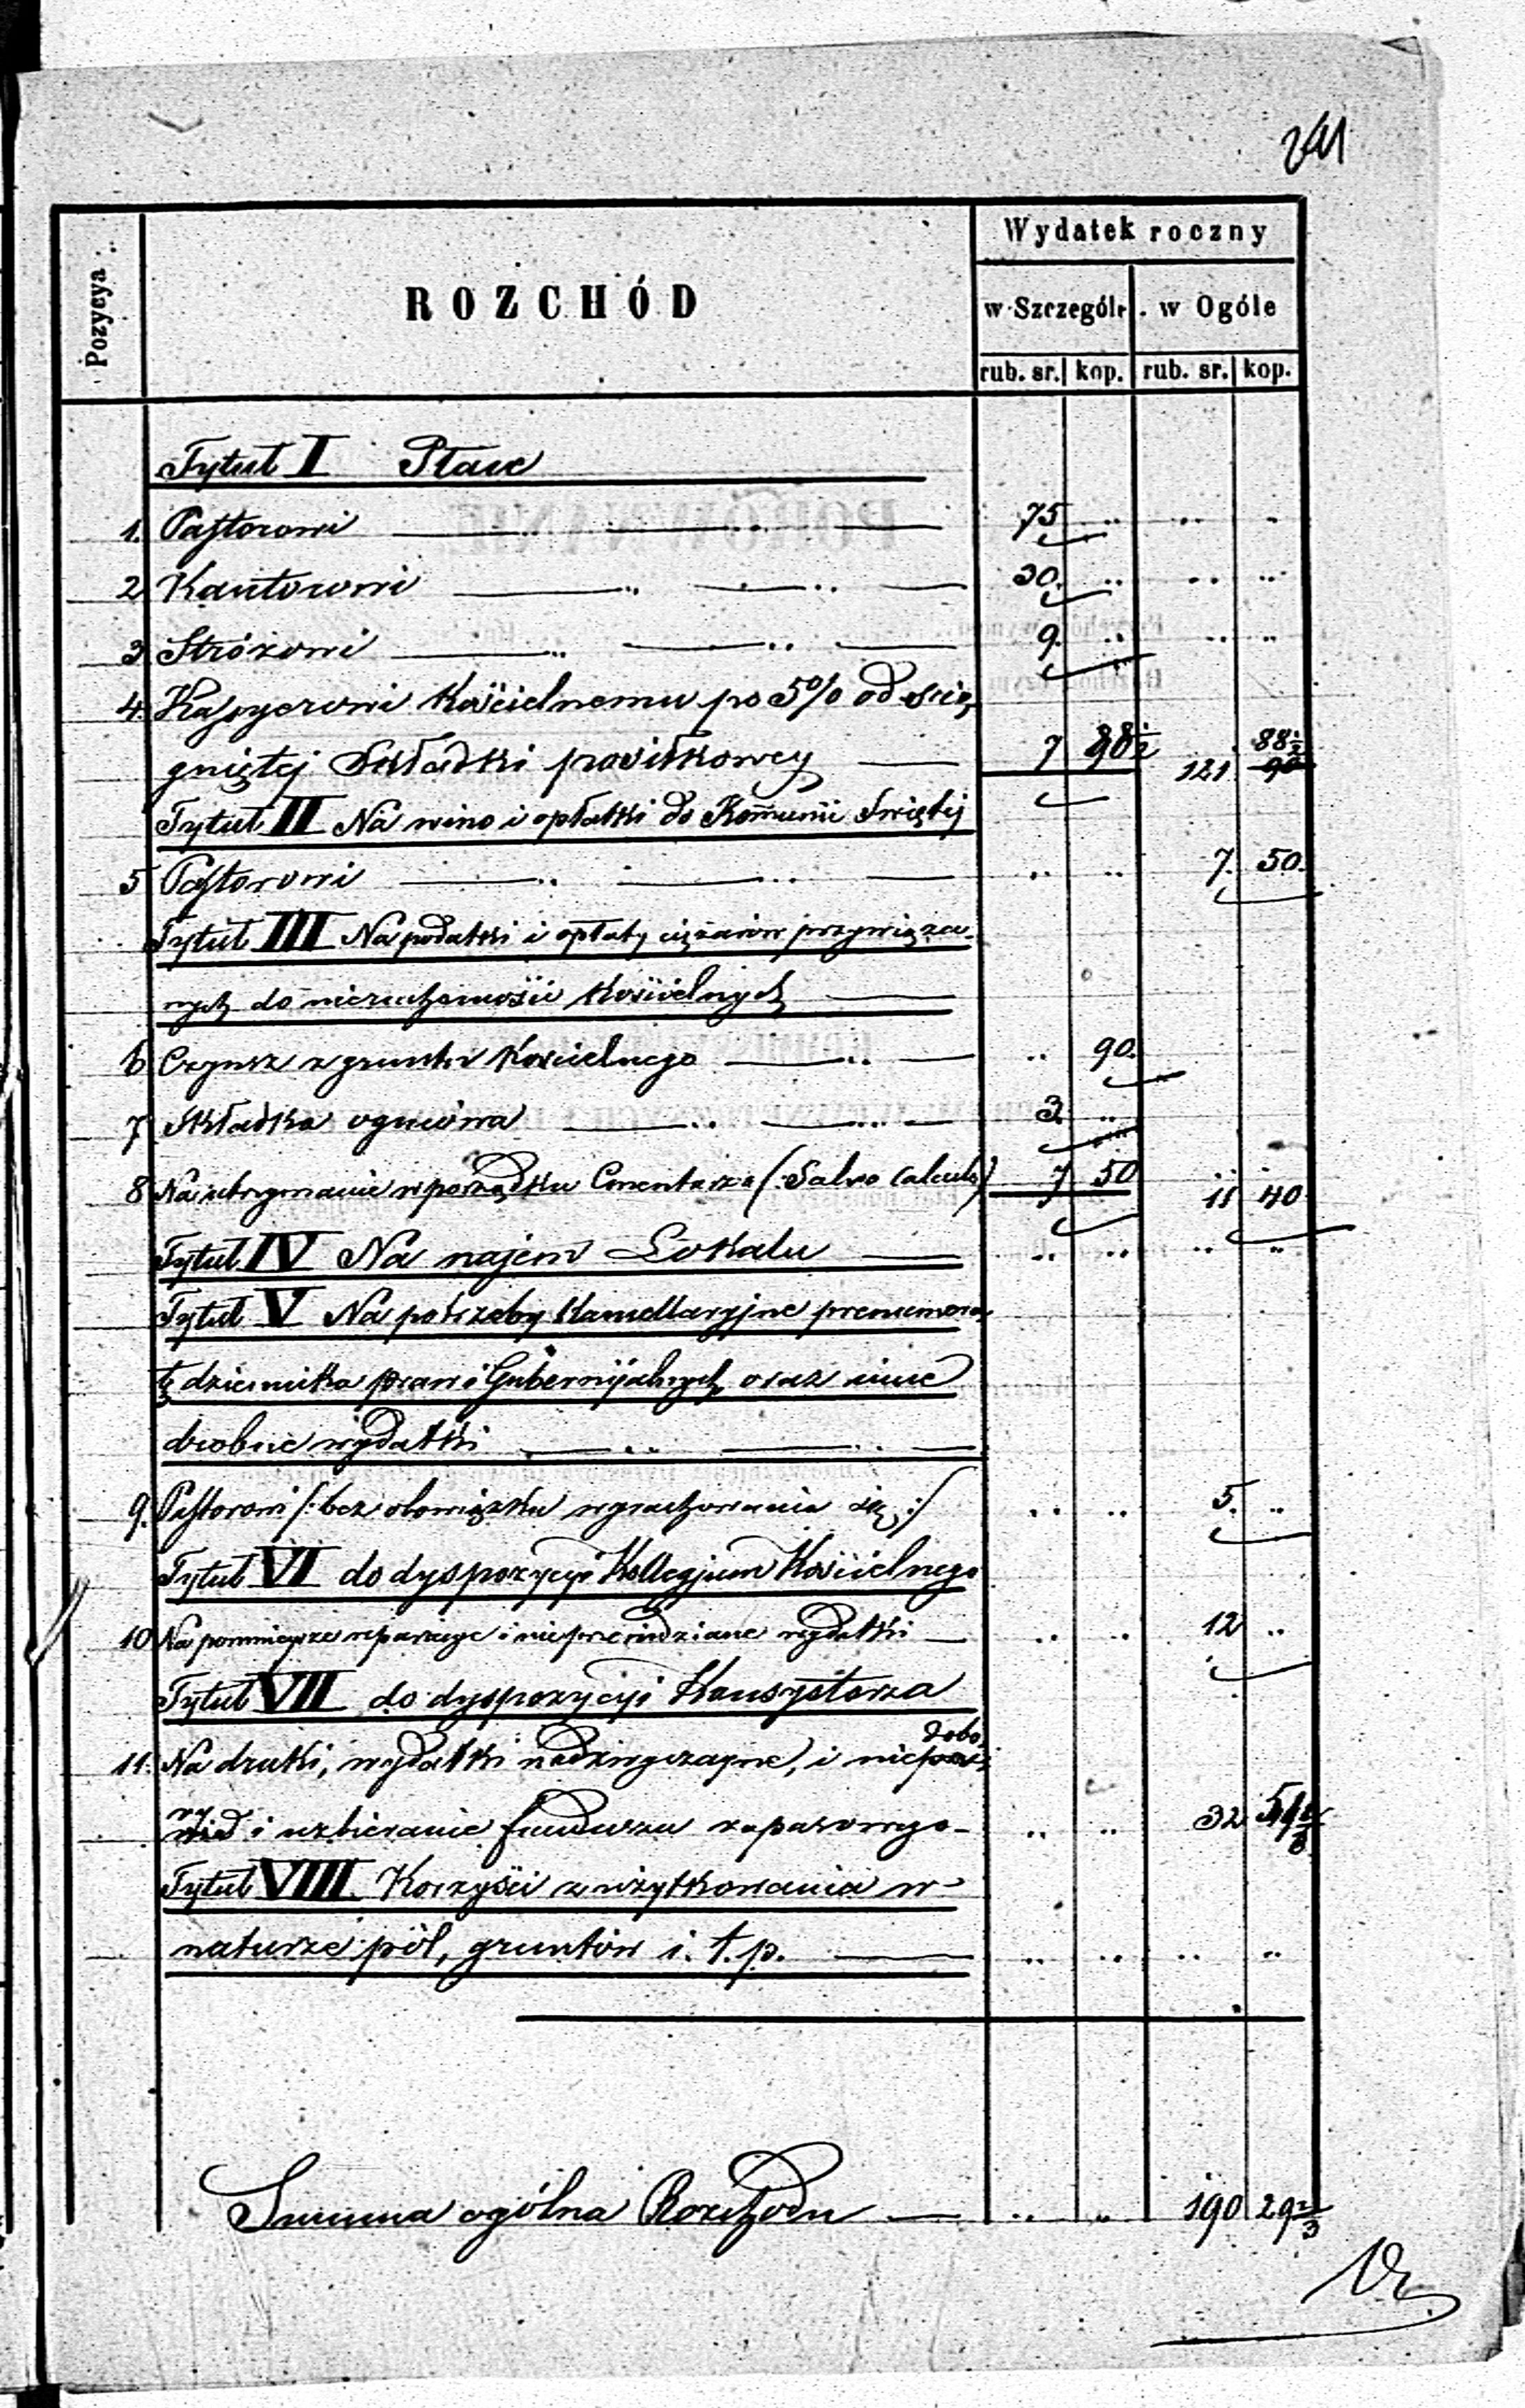 241
Pozycya
ROZCHÓD
Wydatek roczny
w Szczególe w Ogóle
rub. sr. kop. rub. sr. kop.
Tytuł I Płace
1. Pastorowi 75 " " "
2 Kantorowi 30. " " "
3 Stróżowi 9. " " "
4. Kassyerowi Kościelnemu po 5% od ścią
gniętej Składki posiłkowey 7 88½ 121 90 88½
Tytuł II Na wino i opłatki do Kommunii Świętéj
5 Pastorowi " " 7. 50.
Tytuł III Na podatki i opłaty ciężarów przywiąza-
nych do nieruchomości Kościelnych
6 Czynsz z gruntu Kościelnego " 90.
7 Składka ogniowa 3. "
8 Na utrzymanie w porządku Cmentarza (: Salvo Calculo) 7 50 11 40
Tytuł IV Na najem Lokalu " " " "
Tytuł V Na potrzeby Kancellaryjne prenumera
tę dziennika praw i Gubernijalnych oraz inne
drobne wydatki
9. Pastorowi /: bez obowiązku wyrachowania się :/ " " 5. "
Tytuł VI do dyspozycyi Kollegjum Kościelnego
10 Na pomniejsze reparacye i nieprzewidziane wydatki " " 12 "
Tytuł VII do dyspozycyi Konsystorza
11. Na druki, wydatki nadzwyczajne, i niedobo
ry i uzbieranie funduszu zapasowego " " 32
Tytuł VIII Korzyści z użytkowania w
naturze pól, gruntów i. t. p. " " " "
Summa ogólna Rozchodu " " 190 29 2/3